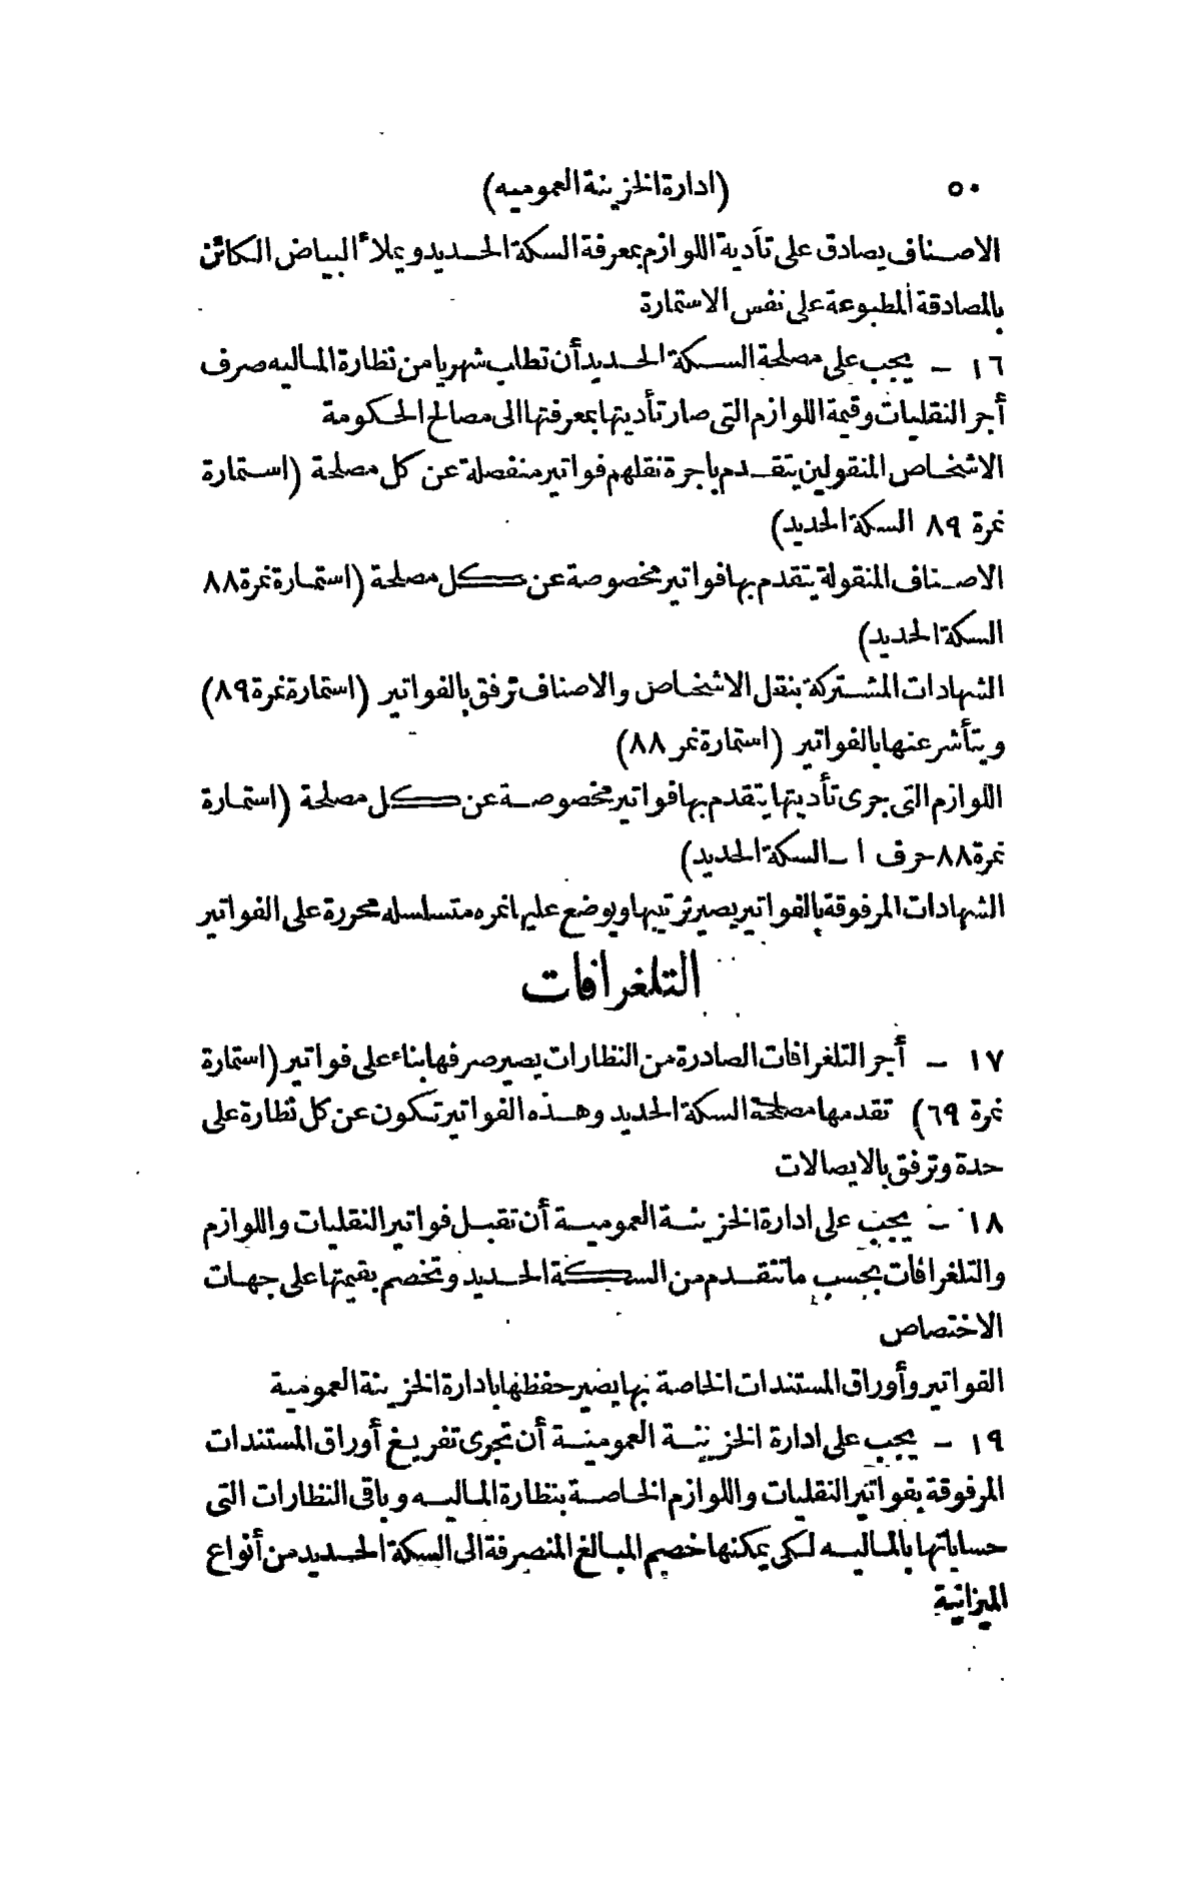 ٥٠ (ادارة الخزينة العموميه)
الاصناف يصادق على تأدية اللوازم بمعرفة السكة الحديد ويملأ البياض الكائن
بالمصادقة المطبوعة على نفس الاستمارة
١٦ ـ يجب على مصلحة السكة الحديد أن تطلب شهريا من نظارة الماليه صرف
أجر النقليات وقيمة اللوازم التى صار تأديتها بمعرفتها الى مصالح الحكومة
الاشخاص المنقولين يتقدم باجرة نقلهم فواتير منفصلة عن كل مصلحة (استمارة
نمرة ٨٩ السكة الحديد)
الاصناف المنقولة يتقدم بها فواتير مخصوصة عن كل مصلحة (استمارة نمرة ٨٨
السكة الحديد)
الشهادات المشتركة بنقل الاشخاص والاصناف ترفق بالفواتير (استمارة نمرة ٨٩)
ويتأشر عنها بالفواتير (استمارة نمر ٨٨)
اللوازم التى جرى تأديتها يتقدم بها فواتير مخصوصة عن كل مصلحة (استمارة
نمرة ٨٨ حرف ا ـ السكة الحديد)
الشهادات المرفوقة بالفواتير يصير ترتيبها ويوضع عليها نمره متسلسله محررة على الفواتير
التلغرافات
١٧ ـ أجر التلغرافات الصادرة من النظارات يصير صرفها بناء على فواتير (استمارة
نمرة ٦٩) تقدمها مصلحة السكة الحديد وهذه الفواتير تكون عن كل نظارة على
حدة وترفق بالايصالات
١٨ ـ يجب على ادارة الخزينة العمومية أن تقبل فواتير النقليات واللوازم
والتلغرافات بحسب ما تتقدم من السكة الحديد وتخصم بقيمتها على جهات
الاختصاص
الفواتير وأوراق المستندات الخاصة بها يصير حفظها بادارة الخزينة العمومية
١٩ ـ يجب على ادارة الخزينة العمومية أن تجرى تفريغ أوراق المستندات
المرفوقة بفواتير النقليات واللوازم الخاصة بنظارة الماليه وباقى النظارات التى
حساباتها بالماليه لكى يمكنها خصم المبالغ المنصرفة الى السكة الحديد من أنواع
الميزانية